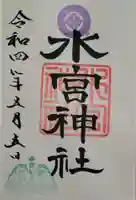 水宮神社
令和四年五月五日